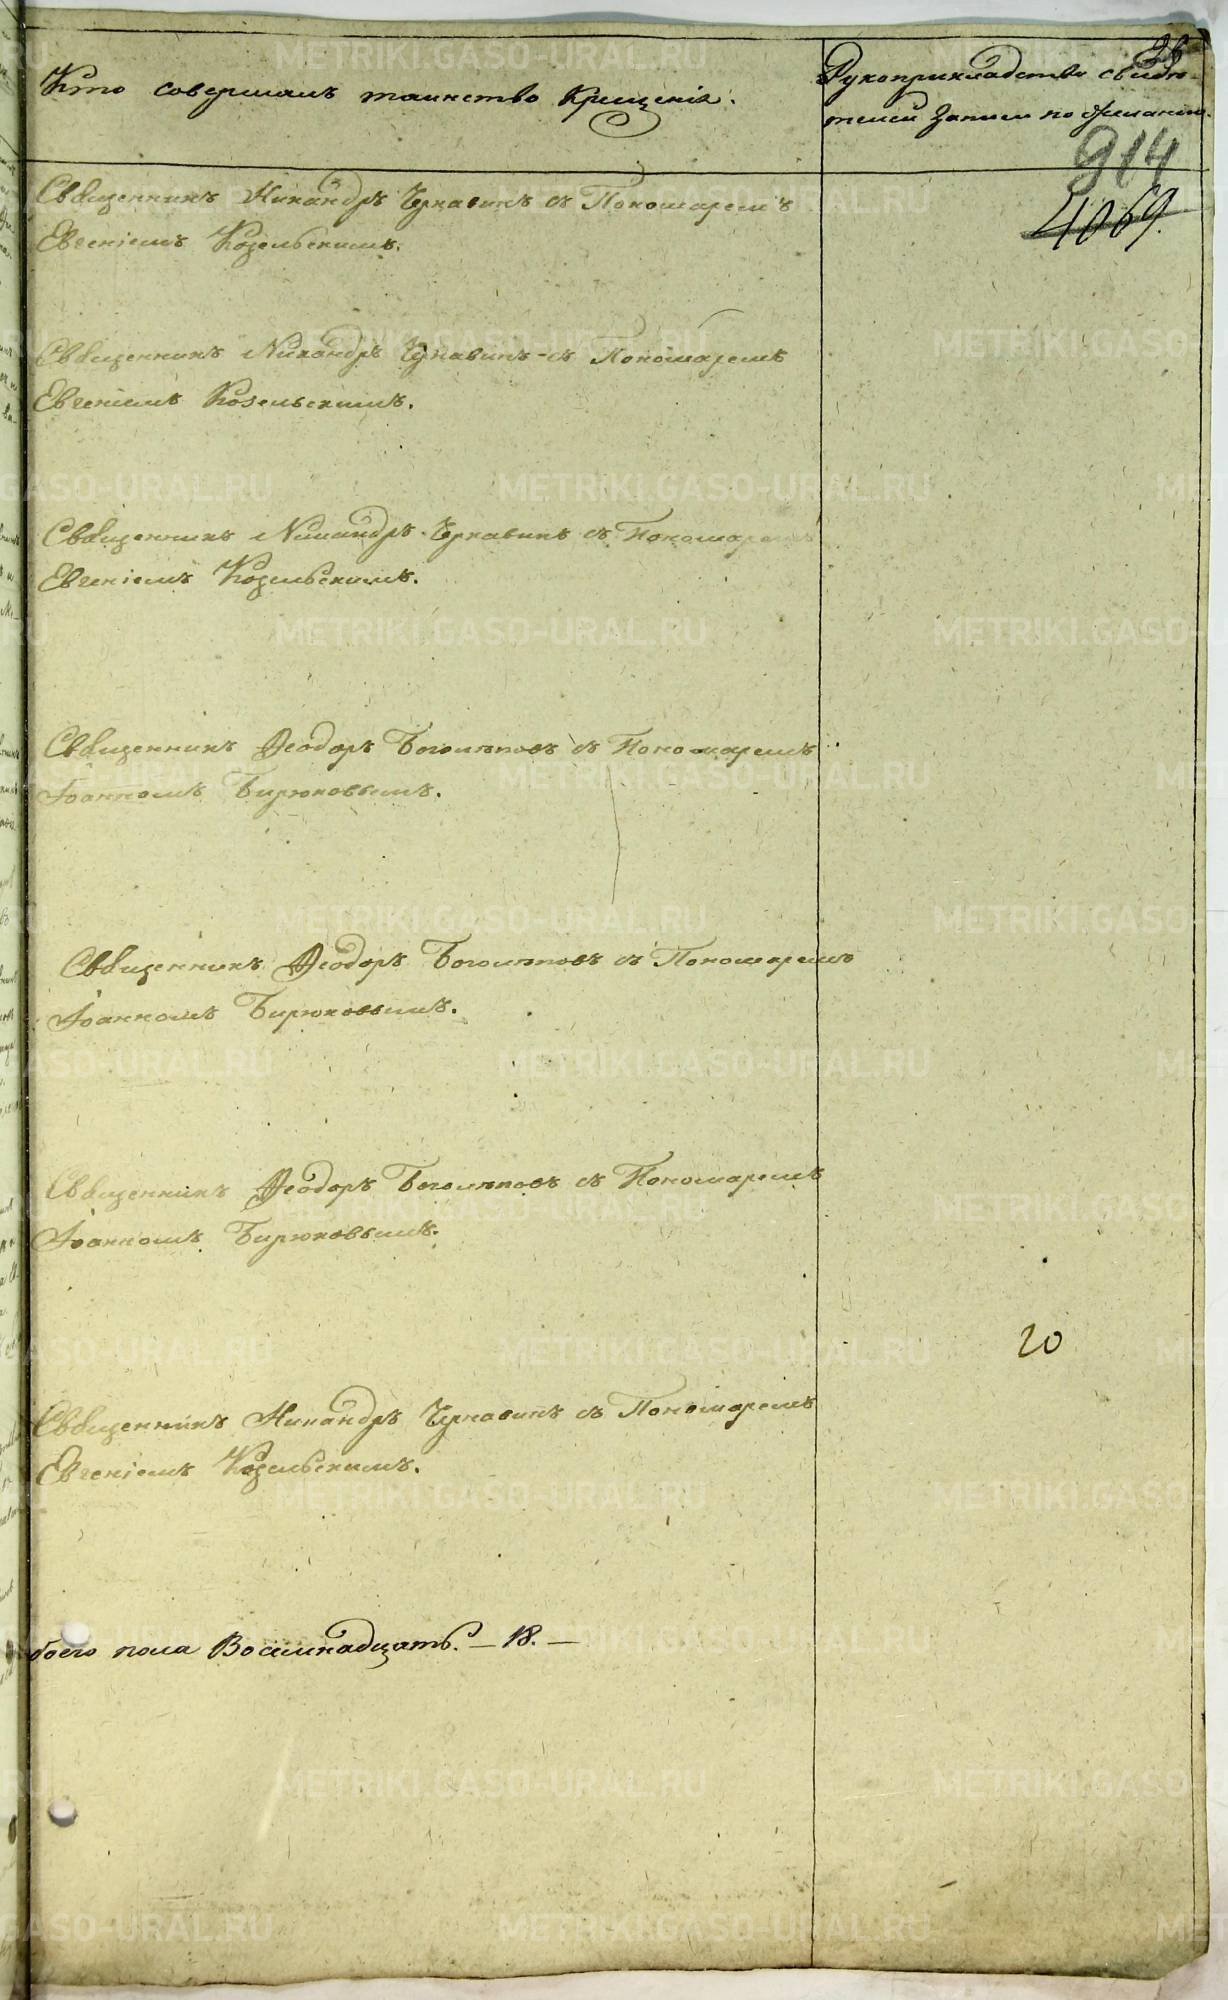 26
Кто совершалъ таинство Крещенія.
Рукоприкладство свидѣ-
телей записи по желанію.
914
4069.
Священникъ Никандръ Чернавинъ съ Пономаремъ
Евгеніемъ Козельскимъ.
Священникъ Никандръ Чернавинъ съ Пономаремъ
Евгеніемъ Козельскимъ.
Священникъ Никандръ Чернавинъ съ Пономаремъ
Евгеніемъ Козельскимъ.
Священникъ Ѳеодоръ Боголѣповъ съ Пономаремъ
Іоанномъ Бирюковымъ.
Священникъ Ѳеодоръ Боголѣповъ съ Пономаремъ
Іоанномъ Бирюковымъ.
Священникъ Ѳеодоръ Боголѣповъ съ Пономаремъ
Іоанномъ Бирюковымъ.
20
Священникъ Никандръ Чернавинъ съ Пономаремъ
Евгеніемъ Козельскимъ.
боего пола Восемнадцать. — 18. —
METRIKI.GASO-URAL.RU